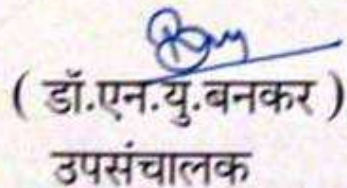 ( डॉ.एन.यु.बनकर )
उपसंचालक